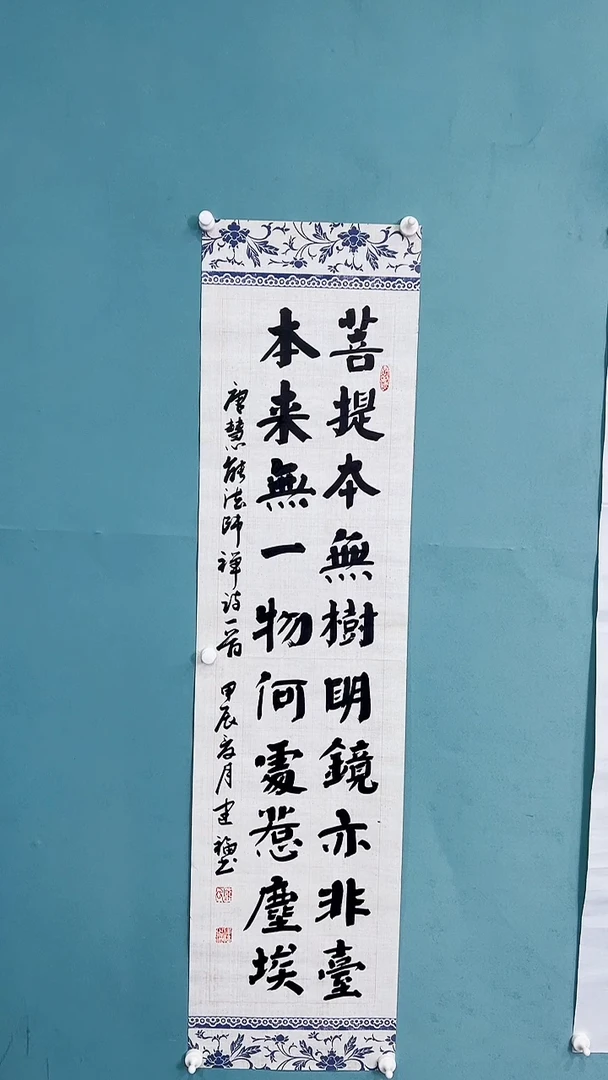 菩提本無樹明鏡亦非臺
本来無一物何處惹塵埃
唐慧能法師禅诗一首 甲辰夏月建福书